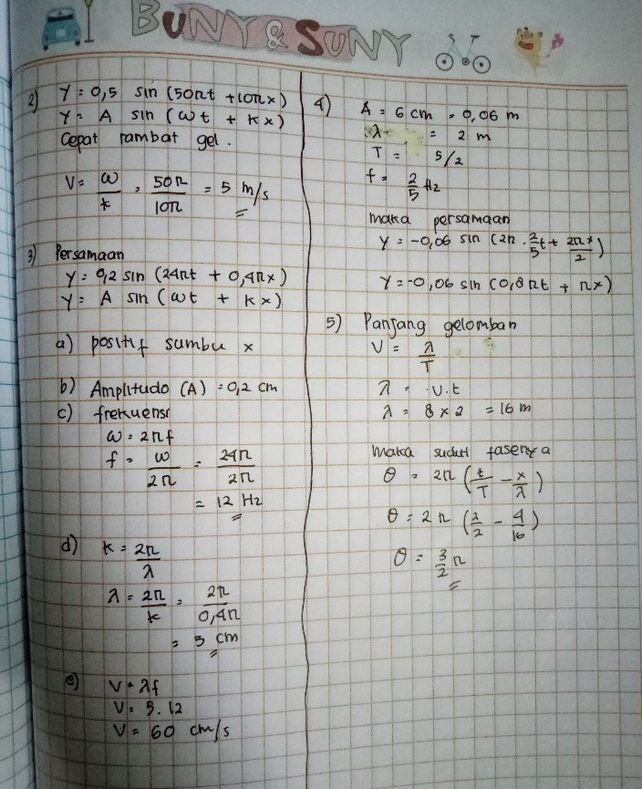 BUNY & SUNY
2) Y = 0,5 sin (50πt + 10πx)
Y = A sin (ωt + kx)
Cepat rambat gel.
V = ω/k = 50π/10π = 5 m/s
3) Persamaan
Y = 0,2 sin (24πt + 0,4πx)
Y = A sin (ωt + kx)
a) positif sumbu x
b) Amplitudo (A) = 0,2 cm
c) frekuensi
ω = 2πf
f = ω/2π = 24π/2π
= 12 Hz
d) k = 2π/λ
λ = 2π/k = 2π/0,4π
= 5 cm
e) V = λf
V = 5.12
V = 60 cm/s
4) A = 6 cm = 0,06 m
λ = 2 m
T = 5/2
f = 2/5 Hz
maka persamaan
Y = -0,06 sin (2π . 2/5 t + 2πx/2)
Y = -0,06 sin (0,8πt + πx)
5) Panjang gelomban
V = λ/T
λ = v.t
λ = 8 x 2 = 16 m
maka sudut fasenya
θ = 2π (t/T - x/λ)
θ = 2π (2/2 - 4/16)
θ = 3/2 π